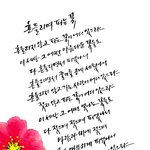 흔들리며 피는 꽃
흔들리지 않고 피는 꽃이 어디 있으랴
이 세상 그 어떤 아름다운 꽃들도
다 흔들리면서 피었나니
흔들리면서 줄기를 곧게 세웠나니
흔들리지 않고 가는 사랑이 어디 있으랴
이 세상 그 어떤 빛나는 꽃들도
다 젖으며 젖으며 피었나니
바람과 비에 젖으며
따뜻하게 피웠나니